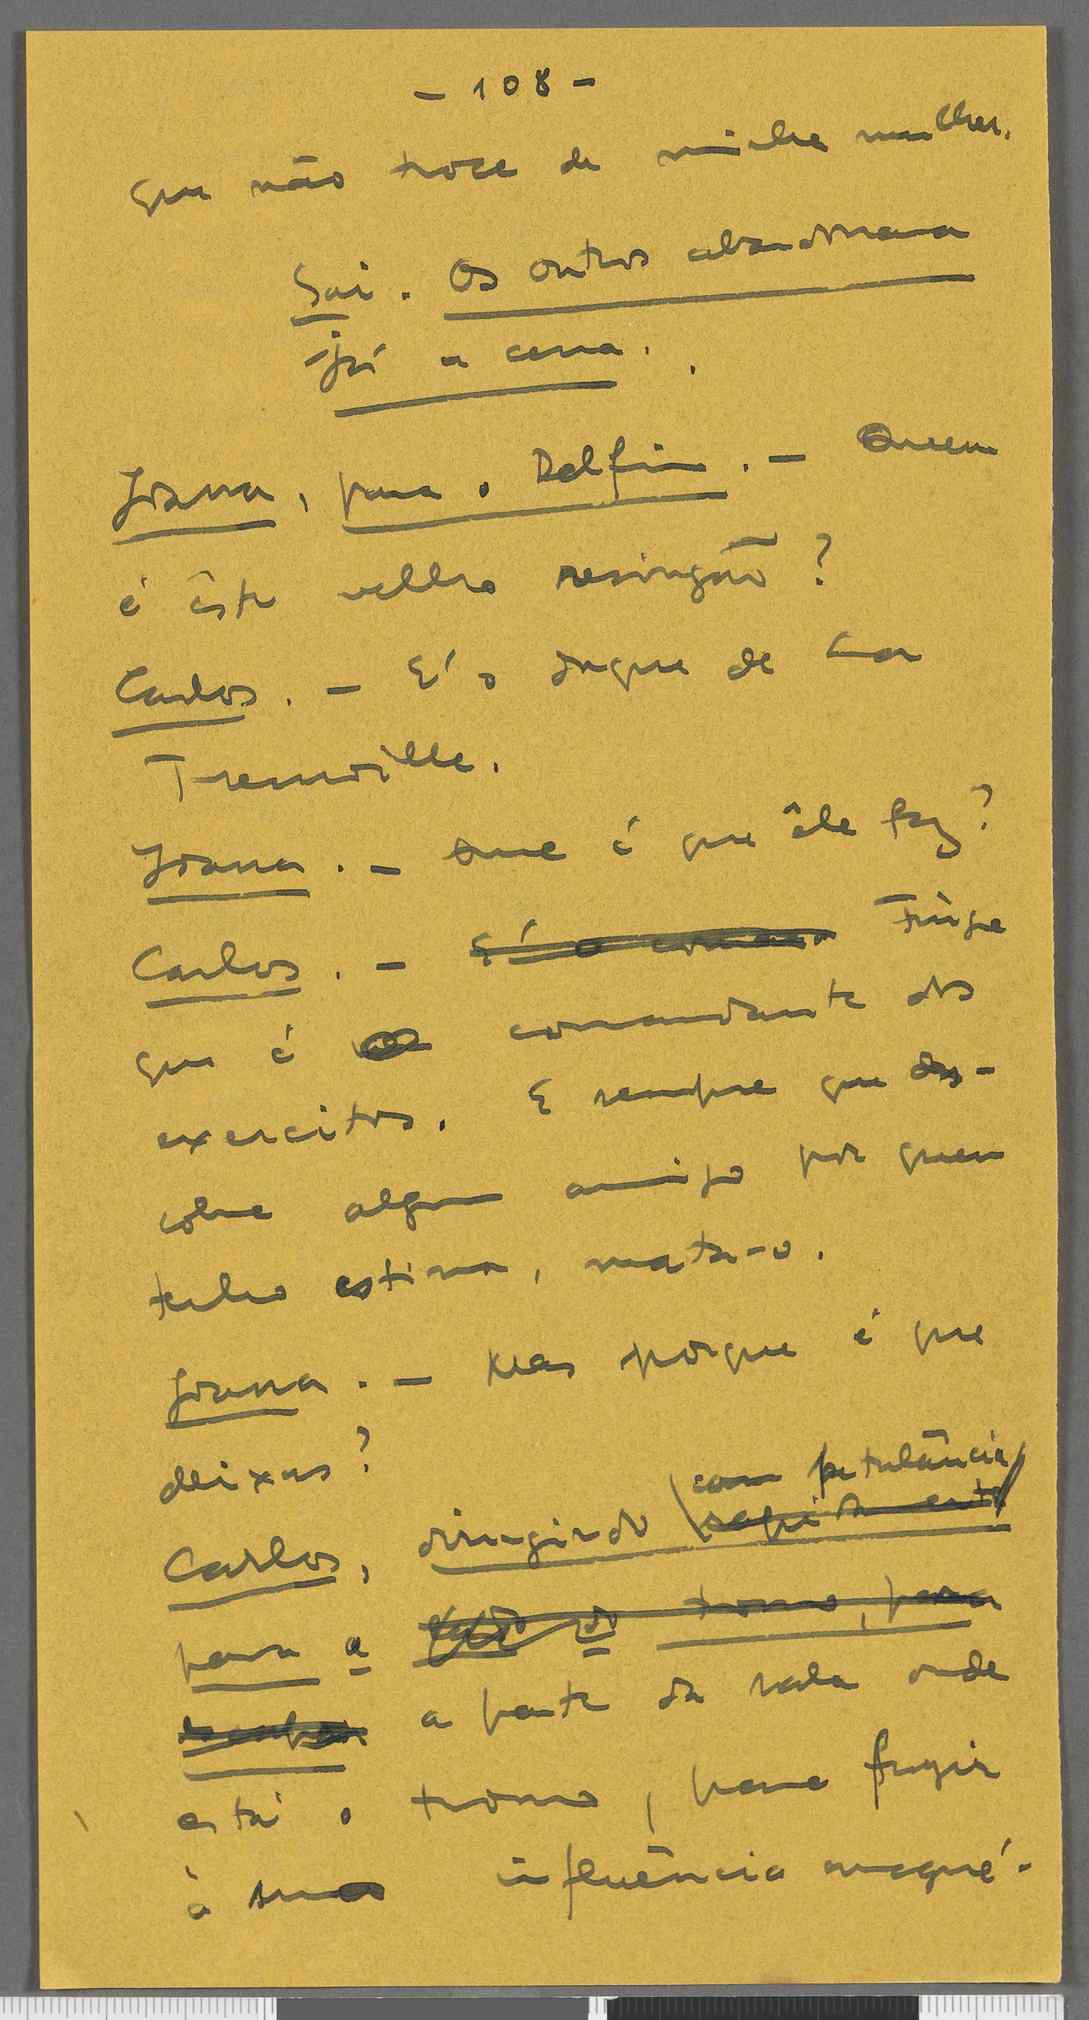 - 108 -
que não troce de minha mulher.
Sai. Os outros abandonara
já a cena.
Joana, para o Delfim. - Quem
é êste velho resingão?
Carlos. - É o duque de La
Tremoille.
Joana. - Que é que êle faz?
Carlos. - É o coman Finge
que é comandante dos
exercitos. E sempre que des-
cobre algum amigo por quem
tenho estima, mata-o.
Joana. - Mas porque é que
deixas?
com petulância
Carlos, dirigindo rapidamente
para a do trono, para
a parte da sala onde
está o trono, para fugir
à sua influência magné-